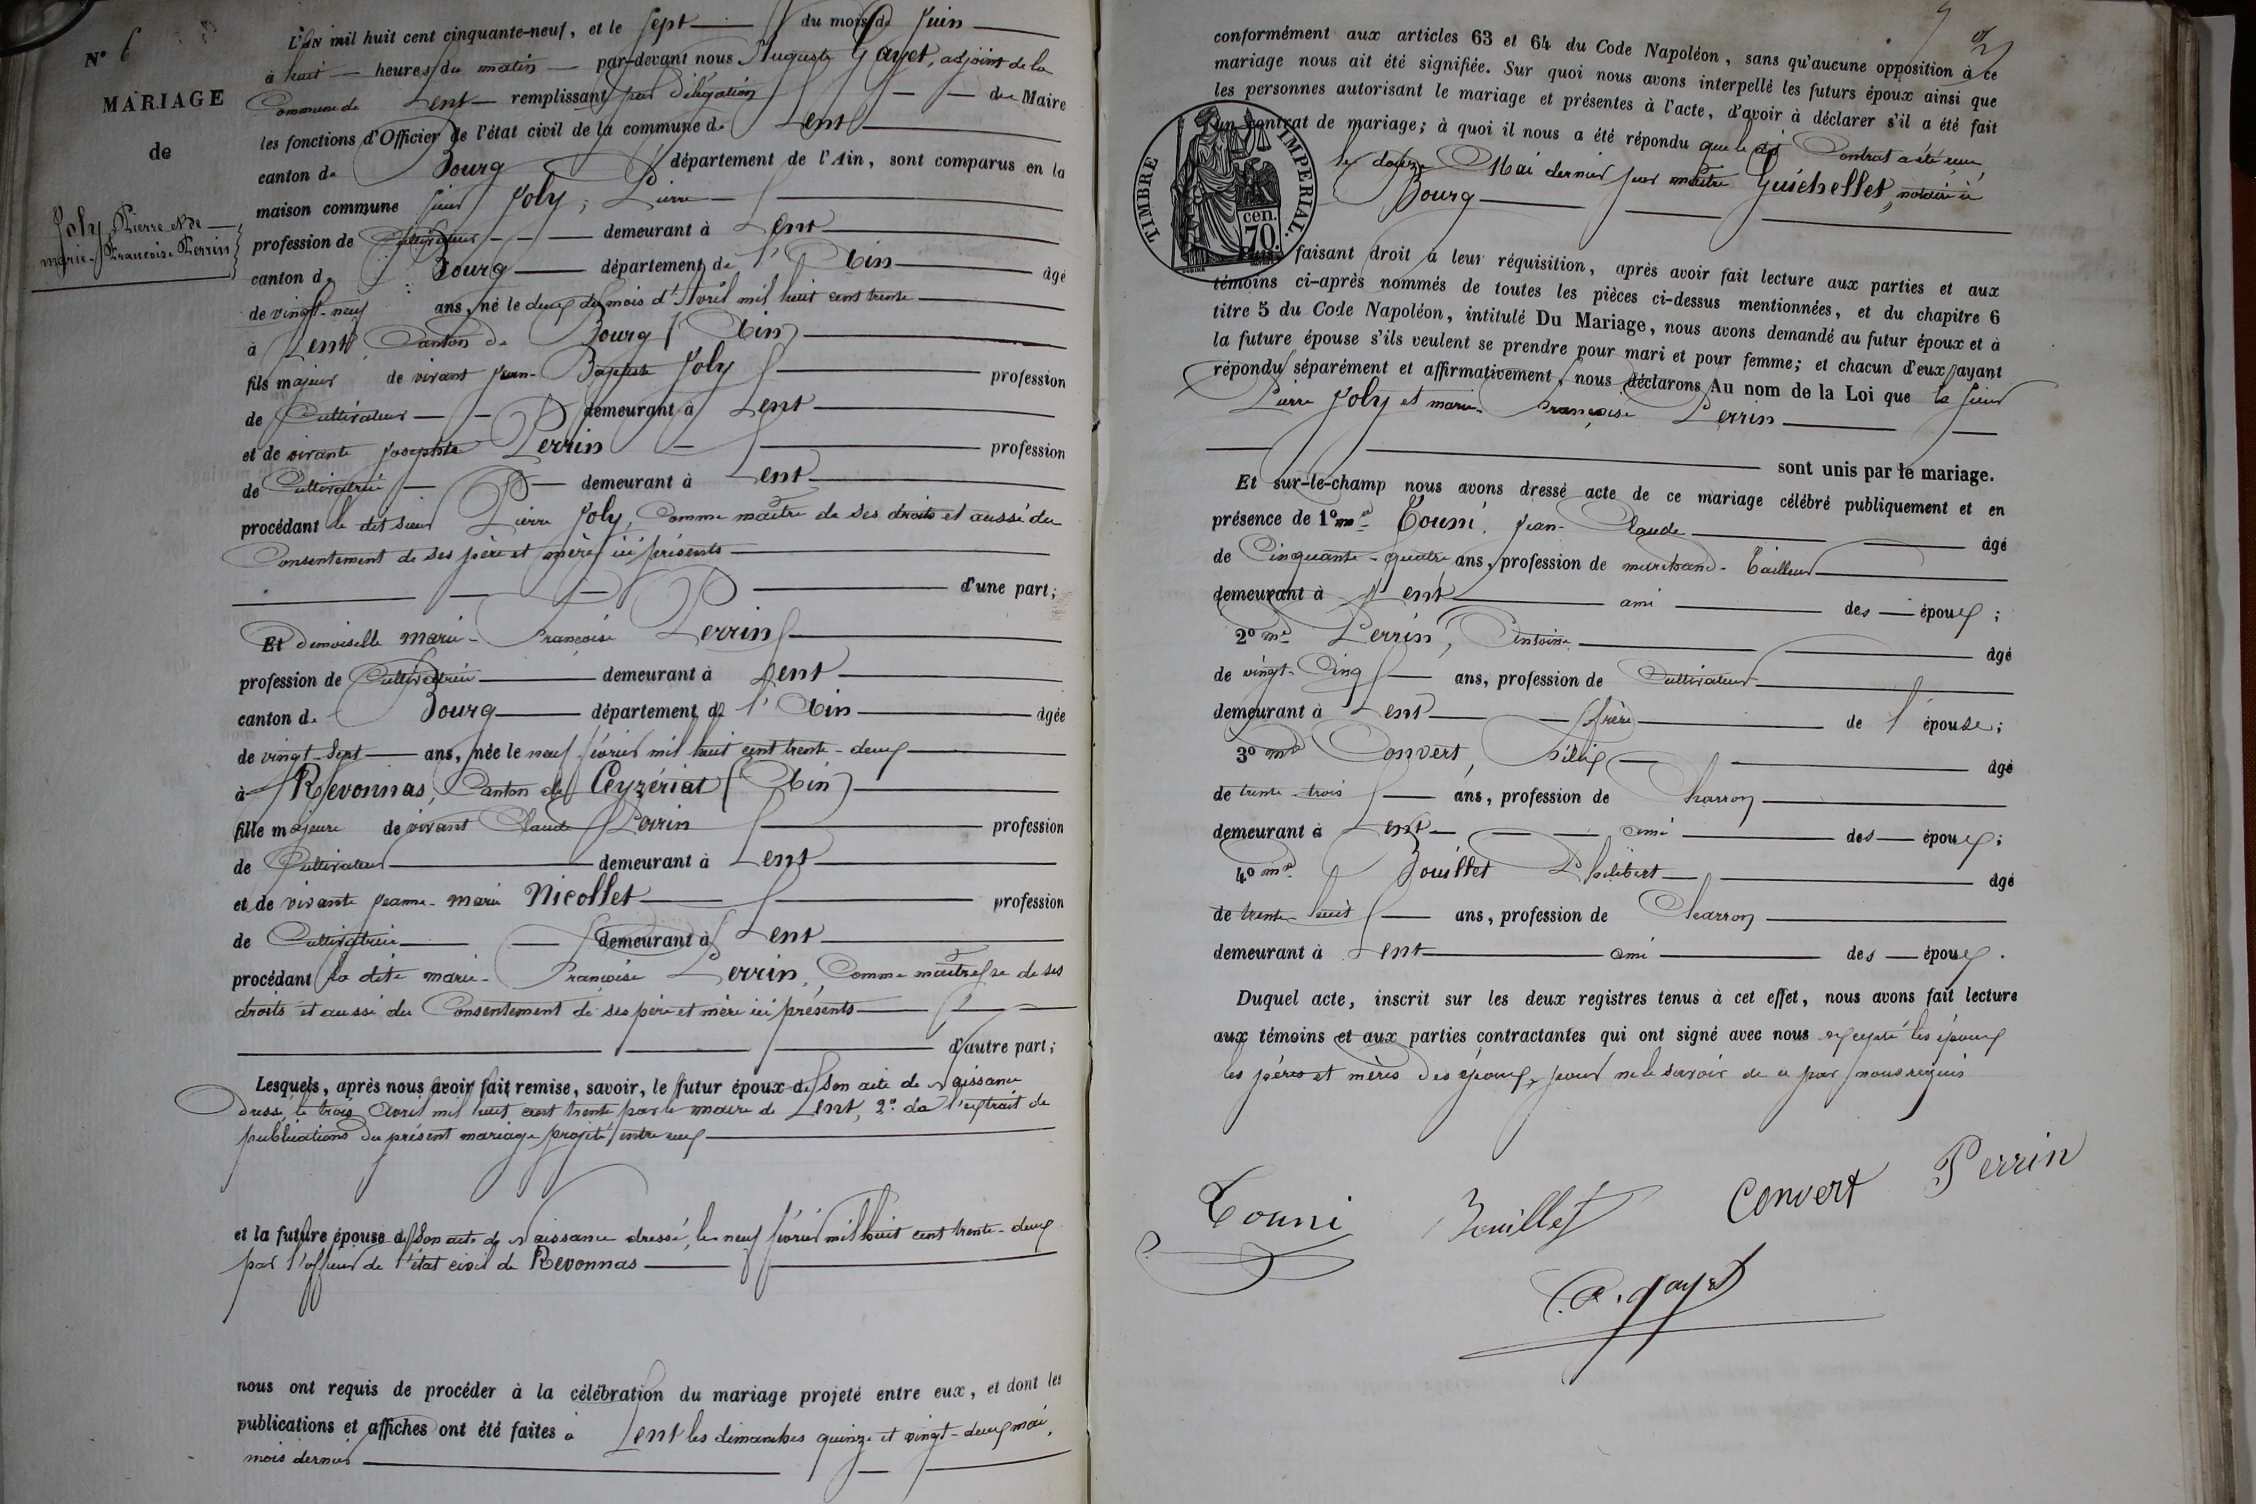 N° 6
MARIAGE
de
Joly Pierre et de
marie-Françoise Perrin
L'AN mil huit cent cinquante-neuf, et le sept du mois de Juin
à huit heures du matin par-devant nous Auguste Gayet, adjoint de la
Commune de Lent remplissant par délégation du Maire
les fonctions d'Officier de l'état civil de la commune de Lent
canton de Bourg département de l'Ain, sont comparus en la
maison commune sieur Joly, Pierre
profession de Cultivateur demeurant à Lent
canton de Bourg département de l'Ain âgé
de vingt-neuf ans, né le deux du mois d'Avril mil huit cent trente
à Lent Canton de Bourg (Ain)
fils majeur de vivant Jean-Baptiste Joly profession
de Cultivateur demeurant à Lent
et de vivante Josephte Perrin profession
de Cultivatrice demeurant à Lent
procédant le dit sieur Pierre Joly, Comme maître de ses droits et aussi du
Consentement de ses père et mère ici présents
d'une part;
Et demoiselle marie-Françoise Perrin
profession de Cultivatrice demeurant à Lent
canton de Bourg département de l'Ain âgée
de vingt-sept ans, née le neuf février mil huit cent trente-deux
à Revonnas, Canton de Ceyzériat (Ain)
fille majeure de vivant Claude Perrin profession
de Cultivateur demeurant à Lent
et de vivante Jeanne-marie Nicollet profession
de Cultivatrice demeurant à Lent
procédant la dite marie-Françoise Perrin, Comme maîtresse de ses
droits et aussi du Consentement de ses père et mère ici présents
d'autre part;
Lesquels, après nous avoir fait remise, savoir, le futur époux de son acte de Naissance
dressé le trois Avril mil huit cent trente par le maire de Lent, 2° de l'extrait de
publications du présent mariage projeté entre eux
et la future épouse de son acte de Naissance dressé, le neuf février mil huit cent trente-deux
par l'officier de l'état civil de Revonnas
nous ont requis de procéder à la célébration du mariage projeté entre eux, et dont les
publications et affiches ont été faites à Lent les dimanches quinze et vingt-deux mai,
mois dernier
conformément aux articles 63 et 64 du Code Napoléon, sans qu'aucune opposition à ce
mariage nous ait été signifiée. Sur quoi nous avons interpellé les futurs époux ainsi que
les personnes autorisant le mariage et présentes à l'acte, d'avoir à déclarer s'il a été fait
un contrat de mariage; à quoi il nous a été répondu que le dit Contrat a été reçu
le douze Mai dernier par maître Guichellet, notaire à
Bourg
TIMBRE IMPERIAL.
70 cen.
Puis, faisant droit à leur réquisition, après avoir fait lecture aux parties et aux
témoins ci-après nommés de toutes les pièces ci-dessus mentionnées, et du chapitre 6
titre 5 du Code Napoléon, intitulé Du Mariage, nous avons demandé au futur époux et à
la future épouse s'ils veulent se prendre pour mari et pour femme; et chacun d'eux ayant
répondu séparément et affirmativement, nous déclarons Au nom de la Loi que le sieur
Pierre Joly et marie-Françoise Perrin
sont unis par le mariage.
Et sur-le-champ nous avons dressé acte de ce mariage célébré publiquement et en
présence de 1° mr Touni, Jean-Claude âgé
de Cinquante-quatre ans, profession de marchand-Tailleur
demeurant à Lent ami des époux;
2° mr Perrin, Antoine âgé
de vingt-Cinq ans, profession de Cultivateur
demeurant à Lent frère de l'épouse;
3° mr Convert, Félix âgé
de trente-trois ans, profession de Charron
demeurant à Lent ami des époux;
4° mr Bouillet Philibert âgé
de trente-huit ans, profession de Charron
demeurant à Lent ami des époux.
Duquel acte, inscrit sur les deux registres tenus à cet effet, nous avons fait lecture
aux témoins et aux parties contractantes qui ont signé avec nous excepté les époux
les pères et mères des époux, pour ne le savoir de ce par nous requis
Touni Bouillet Convert Perrin
A. Gayet